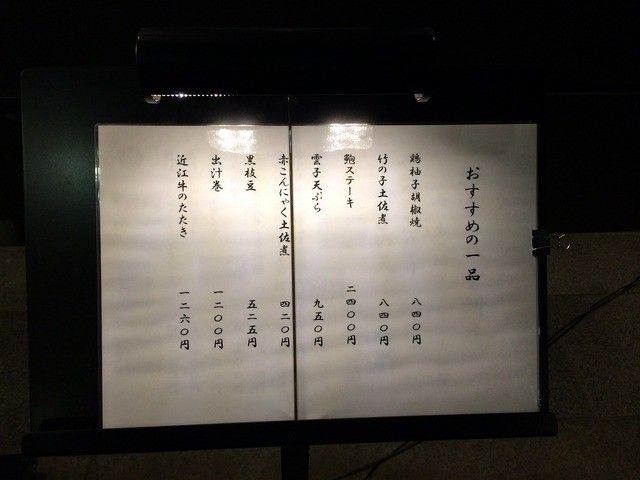 おすすめの一品
鶏柚子胡椒焼 八四〇円
竹の子土佐煮 八四〇円
鮑ステーキ 二四〇〇円
雲子天ぷら 九五〇円
赤こんにゃく土佐煮 四二〇円
黒枝豆 五二五円
出汁巻 一二〇〇円
近江牛のたたき 一二六〇円